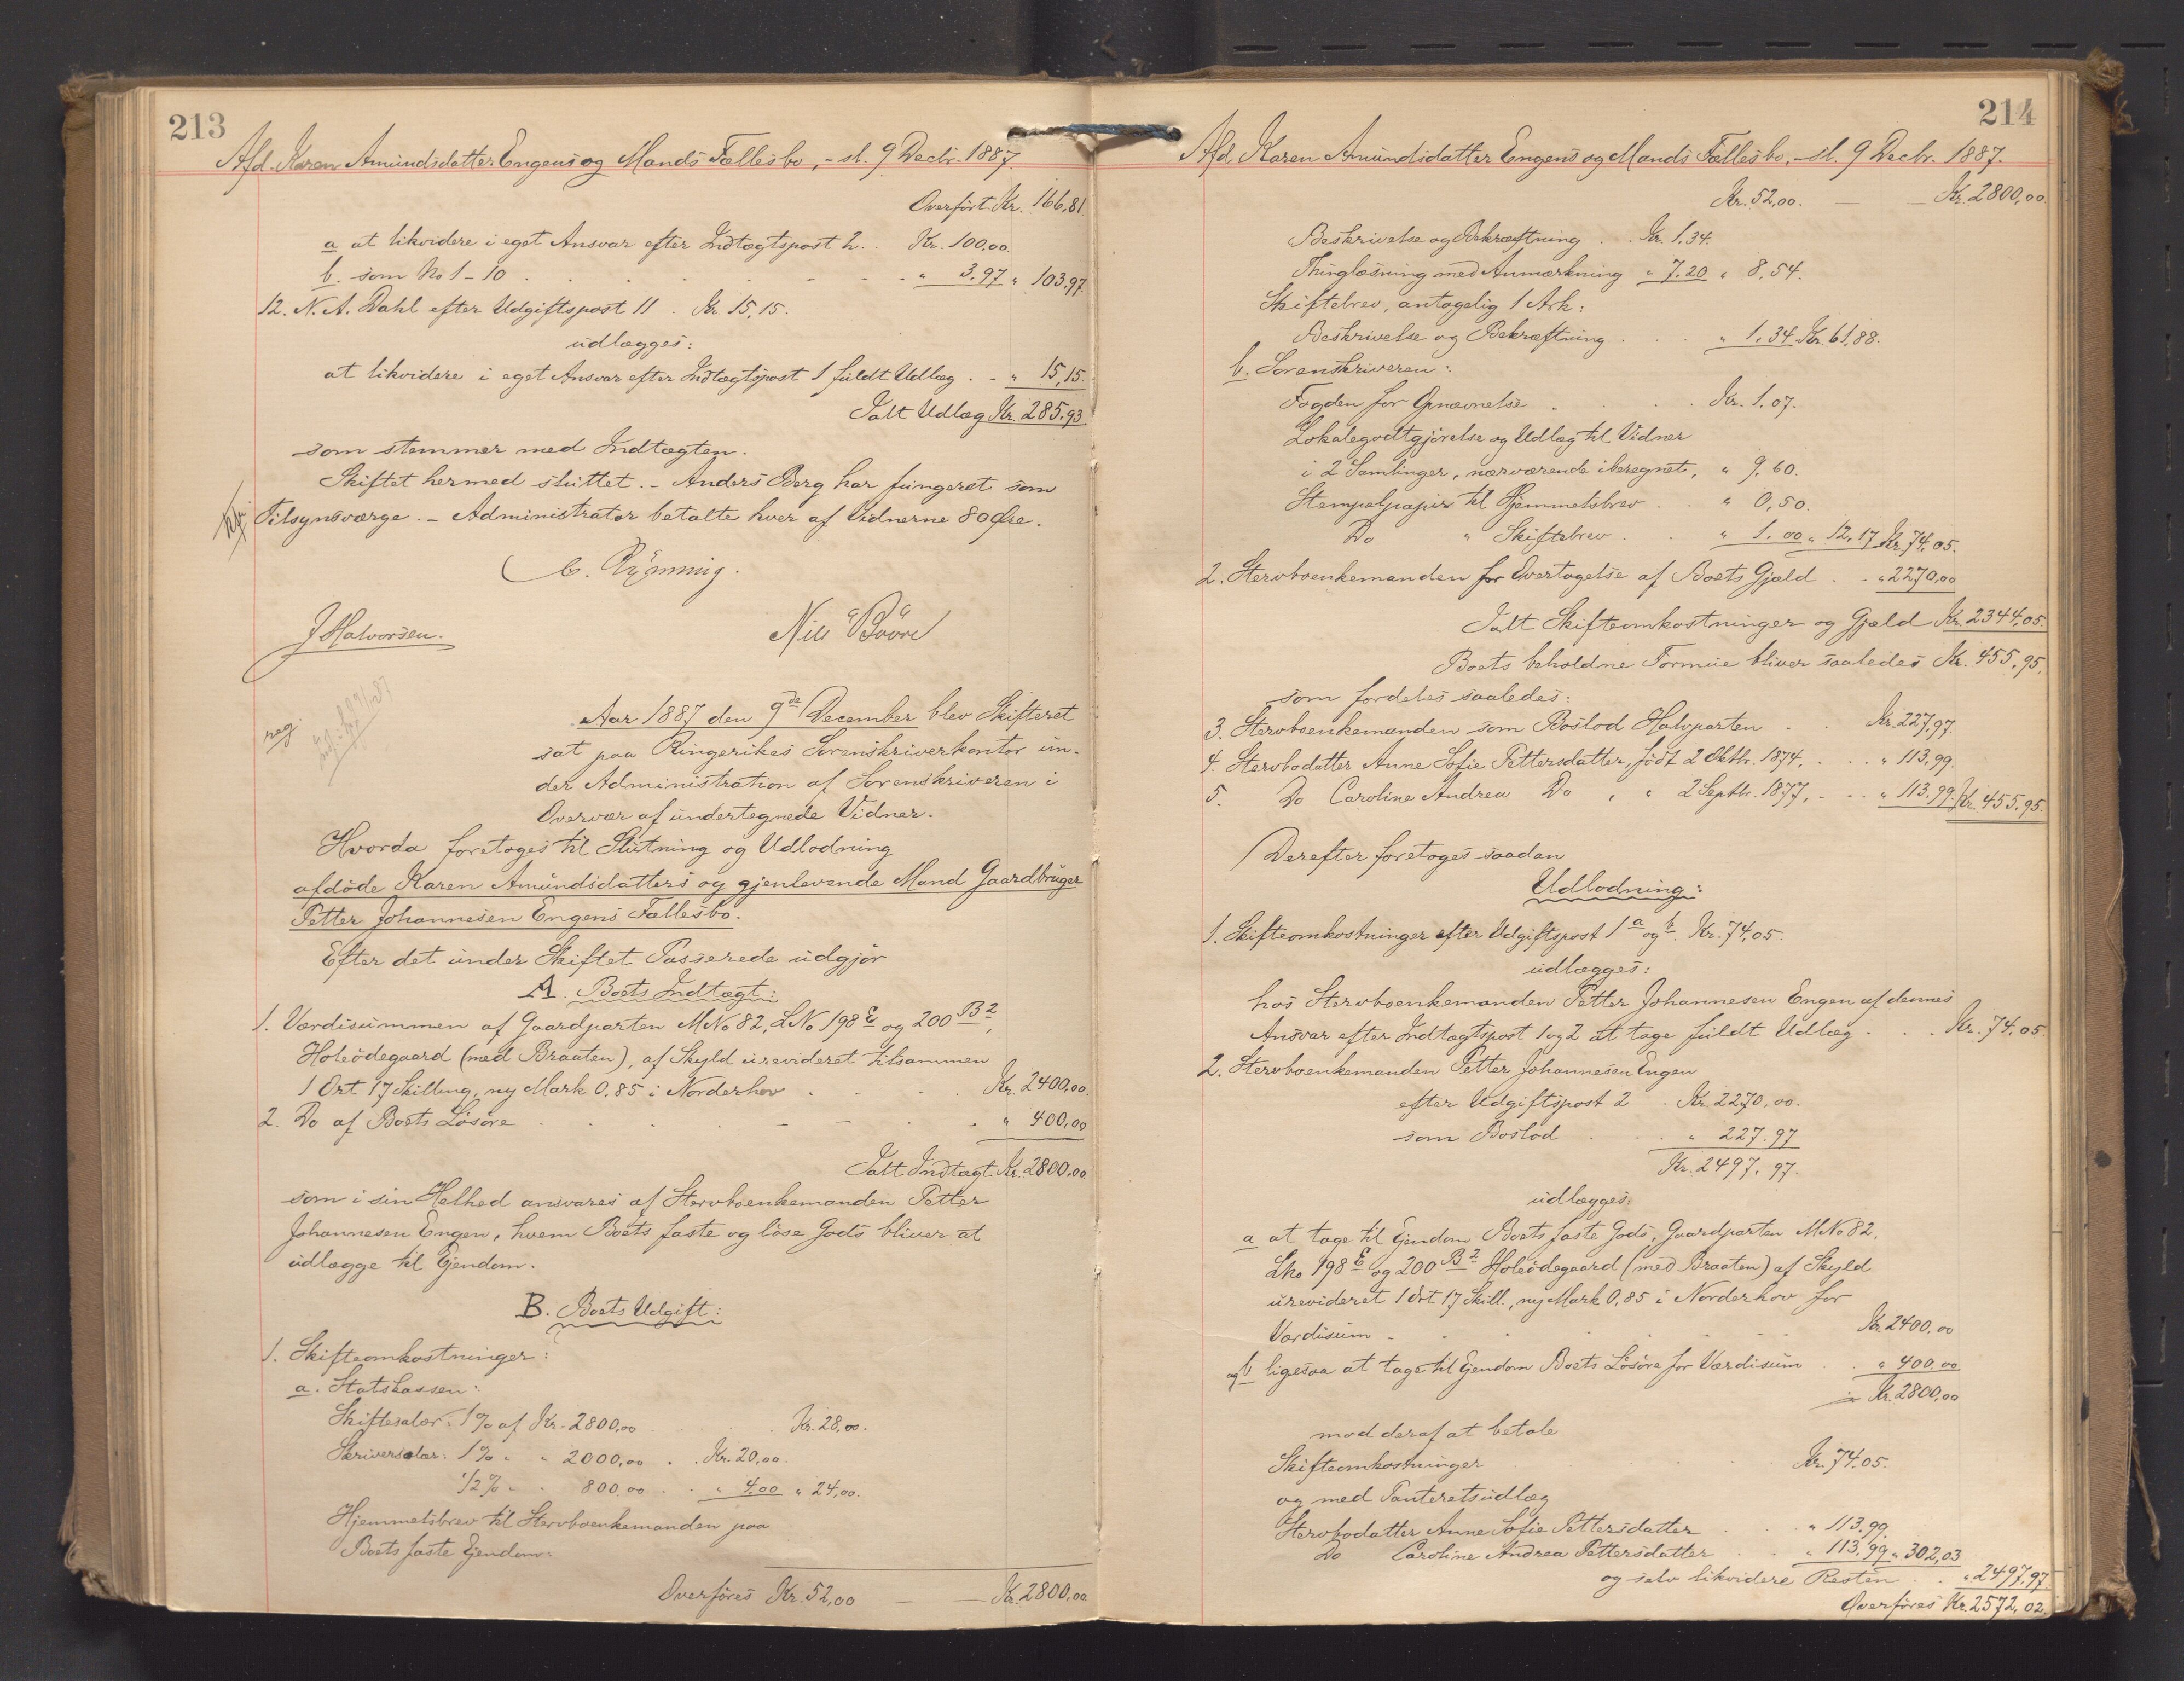 213
Afd. Karen Amundsdatter Engens og Mands Fællesbo, - sl. 9 Decbr. 1887.
Overfört Kr. 166,81
a at likvidere i eget Ansvar efter Indtægtspost 2. . Kr. 100,00
b. som No 1 - 10 . . . . . . " 3.97 " 103.97.
12. N. A. Dahl efter Udgiftspost 11 . Kr. 15,15.
udlægges:
at likvidere i eget Ansvar efter Indtægtspost 1 fuldt Udlæg . - " 15,15.
Ialt Udlæg Kr. 285.93.
som stemmer med Indtægten.
Skiftet hermed sluttet. - Anders Berg har fungeret som
Tilsynsværge. - Administrator betalte hver af Vidnerne 80 Øre.
C. Rÿnning.
J Halvorsen.
Nils Bööre
reg.
Aar 1887 den 9de December blev Skifteret
sat paa Ringerikes Sorenskriverkontor un-
der Administration af Sorenskriveren i
Overvær af undertegnede Vidner.
Hvorda foretoges til Slutning og Udlodning
afdöde Karen Amundsdatters og gjenlevende Mand Gaardbruger
Petter Johannesen Engens Fællesbo.
Efter det under Skiftet Passerede udgjör
A. Boets Indtægt:
1. Værdisummen af Gaardparten MNo 82, LNo 198 E og 200 B2,
Holeödegaard (med Braaten), af Skyld urevideret tilsammen
1 Ort 17 Skilling, ny Mark 0,85 i Norderhov . . . . Kr. 2400,00.
2. Do af Boets Lösöre . . . . - - . . " 400,00
Ialt Indtægt Kr. 2800,00
som i sin Helhed ansvares af Stervboenkemanden Petter
Johannesen Engen, hvem Boets faste og löse Gods bliver at
udlægge til Ejendom.
B. Boets Udgift:
1. Skifteomkostninger:
a. Statskassen:
Skiftesalær: 1 % af Kr. 2800,00 . . . Kr. 28,00.
Skriversalær: 1 % " " 2000,00 . . Kr. 20,00.
1/2 % " . 800.00 . . " 4.00 " 24,00.
Hjemmelsbrev til Stervboenkemanden paa
Boets faste Ejendom:
Overföres Kr. 52,00 — — Kr. 2800,00
214
Afd. Karen Amundsdatter Engens og Mands Fællesbo, - sl. 9 Decbr. 1887.
Kr. 52,00. — — Kr. 2800,00.
Beskrivelse og Bekræftning . . Kr. 1,34.
Thinglæsning med Anmærkning " 7.20 " 8,54.
Skiftebrev, antagelig 1 Ark:
Beskrivelse og Bekræftning . . . " 1.34 Kr. 61,88.
b. Sorenskriveren:
Fogden for Opnævnelse . . . . Kr. 1.07.
Lokalegodtgjörelse og Udlæg til Vidner
i 2 Samlinger, nærværende iberegnet, " 9.60.
Stempelpapir til Hjemmelsbrev . . " 0,50.
Do " Skiftebrev . . " 1.00 " 12,17 Kr. 74,05.
2. Stervboenkemanden for Overtagelse af Boets Gjæld . - " 2270,00
Ialt Skifteomkostninger og Gjæld Kr. 2344,05.
Boets beholdne Formue bliver saaledes Kr. 455,95.
som fordeles saaledes:
3. Stervboenkemanden som Boslod Halvparten . . Kr. 227,97.
4. Stervbodatter Anne Sofie Pettersdatter, född 2 Oktbr. 1874, . . . " 113,99.
5. Do Caroline Andrea Do , " 2 Septbr. 1877, . - . " 113.99. Kr. 455,95.
Derefter foretoges saadan
Udlodning:
1. Skifteomkostninger efter Udgiftspost 1 a og b. Kr. 74,05.
udlægges:
hos Stervboenkemanden Petter Johannesen Engen af dennes
Ansvar efter Indtægtspost 1 og 2 at tage fuldt Udlæg . . . Kr. 74.05
2. Stervboenkemanden Petter Johannesen Engen
efter Udgiftspost 2 . Kr. 2270.00.
som Boslod . . . " 227.97
Kr. 2497.97.
udlægges:
a at tage til Ejendom Boets faste Gods, Gaardparten MNo 82,
LNo 198 E og 200 B2 Holeödegaard (med Braaten) af Skyld
urevideret 1 Ort 17 Skill., ny Mark 0,85 i Norderhov for
Værdisum - . . . . . Kr. 2400,00
og b ligesaa at tage til Ejendom Boets Lösöre for Værdisum . . " 400,00
Kr. 2800,00
mod deraf at betale
Skifteomkostninger . . . Kr. 74.05.
og med Panteretsudlæg
Stervbodatter Anne Sofie Pettersdatter . . . " 113.99.
Do Caroline Andrea Pettersdatter . . " 113.99 " 302,03
og selv likvidere Resten . . " 2497.97.
Overföres Kr. 2572,02.